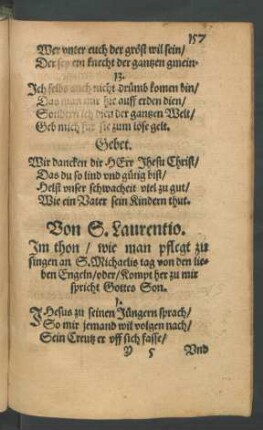 157
Wer vnter euch der gröst wil sein/
Der sey ein knecht der gantzen gmein.
13.
Ich selbs auch nicht drümb komen bin/
Das man mir hie auff erden dien/
Sondern ich dien der gantzen Welt/
Geb mich für sie zum löse gelt.
Gebet.
Wir dancken dir HErr Jhesu Christ/
Das du so lind vnd gütig bist/
Helst vnser schwacheit viel zu gut/
Wie ein Vater sein Kindern thut.
Von S. Laurentio.
Im thon / wie man pflegt zu
singen an S. Michaelis tag von den lie-
ben Engeln/oder/Kompt her zu mir
spricht Gottes Son.
1.
JHesus zu seinen Jüngern sprach/
So mir jemand wil volgen nach/
Sein Creutz er vff sich fasse/
V 5 Vnd